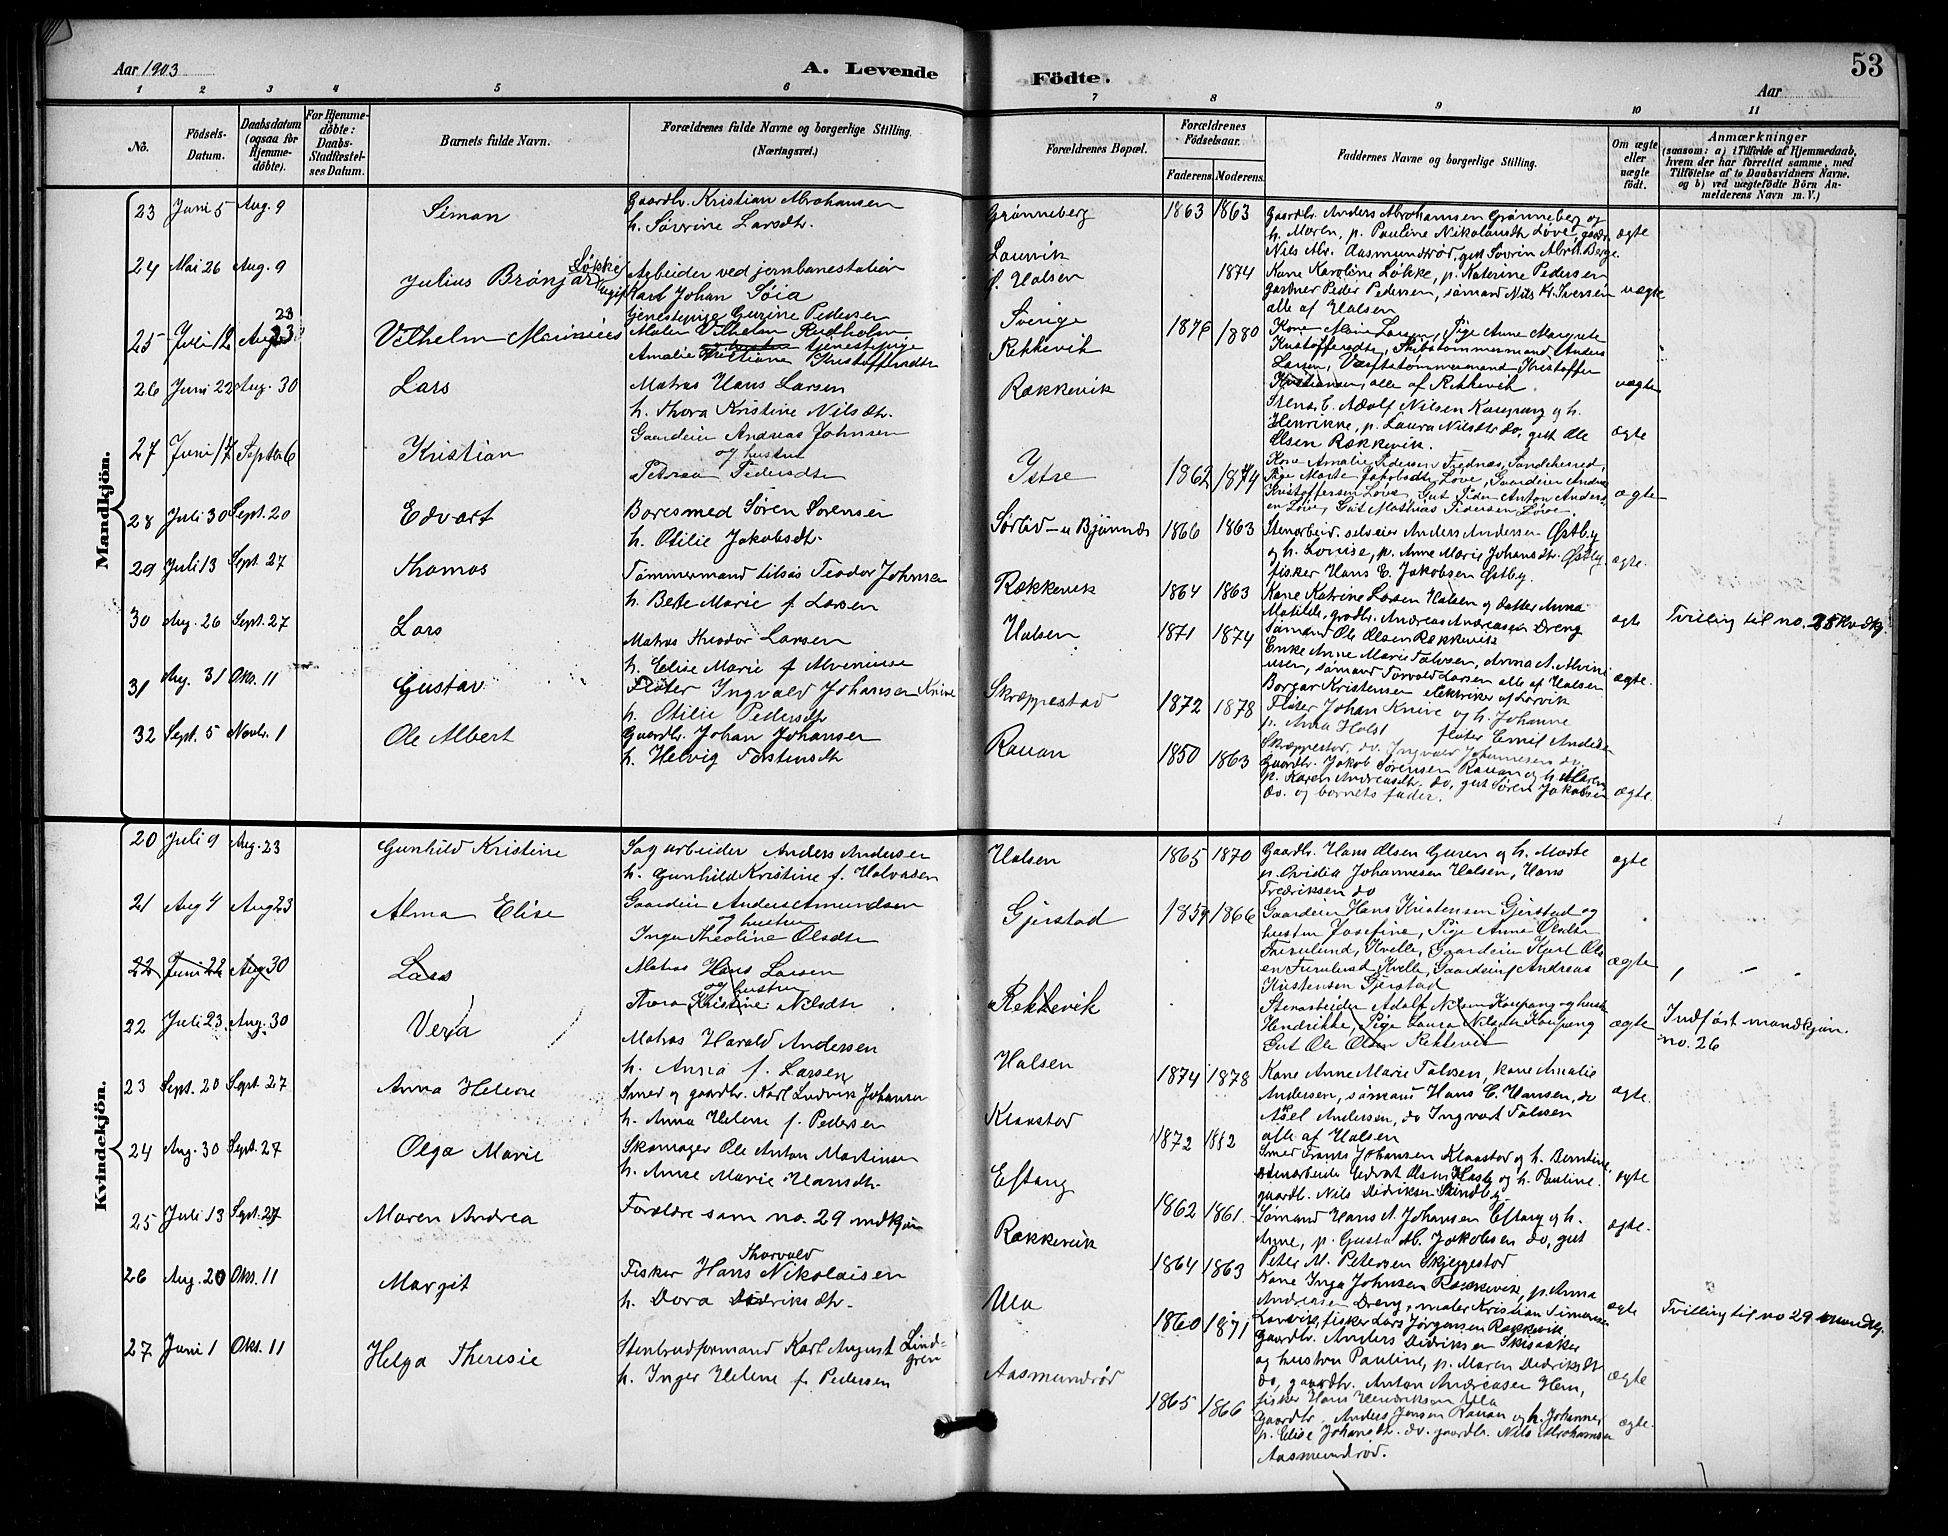 Aar 1903
A. Levende
Födte.
Aar
53
1 2 3 4 5 6 7 8 9 10 11
No.
Födsels-
Datum.
Daabsdatum
(ogsaa for
Hjemme-
döbte).
For Hjemme-
döbte:
Daabs-
Stadfæstel-
ses Datum.
Barnets fulde Navn.
Forældrenes fulde Navne og borgerlige Stilling.
(Næringsvei.)
Forældrenes Bopæl.
Forældrenes
Födselsaar.
Faderens.
Moderens.
Faddernes Navne og borgerlige Stilling.
Om ægte
eller
uægte
födt.
Anmærkninger
(saasom: a) i Tilfælde af Hjemmedaab,
hvem der har forrettet samme, med
Tilföielse af to Daabsvidners Navne.
og b) ved uægtefödte Börn An-
melderens Navn m. V.)
Mandkjön.
23 Juni 5 Aug. 9 Simon
Gaardbr. Kristian Abrahamsen
h. Søvrine Larsdtr.
Grønneberg 1863 1863
Gaardbr. Anders Abrahamsen Grønneberg og
h. Maren, p. Pauline Nikolaisdtr Løve, gaardbr
Nils Abr. Aasmundrød, gut Søvrin Abrah. Berge.
ægte
24 Mai 26 Aug. 9 Julius Brønjar Løkke
Arbeider ved jernbanestation
Karl Johan Søia
tjenestepige Gurine Pedersen
Laurvik
f. Halsen 1874
Kone Karoline Løkke, p. Katerine Pedersen
gartner Peder Pedersen, sømand Nils Kr. Iversen
alle af Halsen
uægte
25 Juli 12 Aug 23 Vilhelm
Maler Vilhelm Rudholm
tjenestepige
Amalie Kristiane Kristoffersdtr
Sverige
Rekkevik 1876 1880
Kone Marie Larsen, Pige Anne Margrete
Kristoffersdtr, Skibstømmermand Anders
Larsen, Værftstømmermand Kristoffer
Kristiansen, alle af Rekkevik.
uægte
26 Juni 22 Aug. 30 Lars
Matros Hans Larsen
h. Thora Kristine Nilsdtr.
Rækkevik
Stenarb. Adolf Nilsen Kaupang og h.
Henrikke, p. Laura Nilsdtr do, gut Ole
Olsen Rækkevik.
ægte
27 Juni 17 Septbr 6 Kristian
Gaardeier Andreas Johnsen
og hustru
Petrea Pedersdtr
Ystre 1862 1874
Kone Amalie Pedersen Frednæs, Sandeherred,
Pige Marte Jakobsdtr Løve, Gaardeier Andrea
Kristoffersen Løve, Gut Peder Anton Anders
en Løve, Gut Mathias Pedersen Løve.
ægte
28 Juli 30 Sept. 20 Edvart
Boresmed Søren Sørensen
h. Otilie Jakobsdtr.
Sørlid u Bjønnes 1866 1863
Stenarbeid. selveier Anders Andersen Østby
og h. Louise, p. Anne Marie Johansdtr. Østby
fisker Hans C. Jakobsen Østby.
ægte.
29 Juli 13 Sept. 27 Thomas
Tømmermand tilsøs Teodor Johnsen
h. Bete Marie f. Larsen
Rækkevik 1864 1863
Kone Katrine Larsen Halsen og datter Anna
Matilde, grdbr. Andreas Andreassen Dreng
Sømand Ole Olsen Rækkevik
ægte
Tvilling til no. 25 Kvdkj.
30 Aug. 26 Sept. 27 Lars
Matros Theodor Larsen
h. Elise Marie f. Alveniusen
Halsen 1871 1874
Enke Anne Marie Talvsen, Anna A. Alvini
usen, sømand Torvald Larsen alle af Halsen
Borgar Kristensen elektriker af Larvik
ægte.
31 Aug. 31 Okt. 11 Gustav
Fløter Ingvald Johansen Knive
h. Otilie Pedersdtr
Skræppestad 1872 1878
Fløter Johan Knive og h. Johanne
p. Anna Holst fløter Emil Andersen
Skræppestad, do. Ingvald Johannesen do.
32 Sept. 5 Novbr. 1 Ole Albert
Gaardbr. Johan Johansen
h. Helvig Torstensdtr
Rauan 1850 1863
Gaardbr. Jakob Sørensen Rauan og h. Maren,
p. Karen Andreasdtr. do, gut Søren Jakobsen
do. og barnets fader.
ægte.
Kvindekjön.
20 Juli 9 Aug. 23 Gunhild Kristine
Sagarbeider Anders Andersen
h. Gunhild Kristine f. Halvorsen
Halsen 1865 1870
Gaardbr. Hans Olsen Guren og h. Marte
p. Ovidia Johannesen Halsen, Hans
Fredriksen do
ægte
21 Aug 4 Aug 23 Alma Elise
Gaardeier Anders Amundsen
og hustru
Inga Theoline Olsdtr
Gjerstad 1859 1866
Gaardeier Hans Kristensen Gjerstad og
hustru Josefine, Pige Anna Olsdtr
Furulund, Kvelle, Gaardeier Karl Ols
en Furulund Kvelle, Gaardeier Andreas
Kristensen Gjerstad
ægte
22 Juni 22 Aug 30 Lars
Matros Hans Larsen
og hustru
Thora Kristine Nilsdtr
Rekkevik
Stenarbeider Adolf Nilsen Kaupang og hustr
Hendrikke, Pige Laura Nilsdtr Kaupang
Gut Ole Olsen Rekkevik
ægte
Indført mandkjøn
no. 26
22 Juli 23 Aug. 30 Vera
Matros Harald Andersen
h. Anna f. Larsen
Halsen 1874 1878
Kone Anne Marie Talvsen, kone Amalie
Andersen, sømand Hans C. Hansen, do
Aksel Andersen, do Ingvart Talvsen
alle af Halsen
ægte.
23 Sept. 20 Sept. 27 Anna Helene
Smed og gaardbr. Karl Ludvik Johansen
h. Anna Helene f. Pedersen
Klaastad 1872 1882
Smed Frants Johansen Klaastad og h. Berntine
stenarbeider Edvart Olsen Hasle og h. Pauline.
gaardb. Nils Didriksen Skindby
ægte
24 Aug. 30 Sept. 27 Olga Marie
Skomager Ole Anton Martinsen
h. Anne Marie Hansdtr.
Eftang 1862 1861.
Sømand Hans A. Johansen Eftang og h.
Anne, p. Gusta M. Jakobsen do, gut
Peter M. Petersen Skjeggestad
ægte.
25 Juli 13 Sept. 27 Maren Andrea
Forældre som no. 29 mdkjøn
Rækkevik 1864 1863
Kone Inga Johnsen Rækkevik, p. Anna
Andreasen Dreng, maler Kristian Simonsen
Larvik, fisker Lars Jørgensen Rækkevik
ægte
Tvilling til no 29 mandkj.
26 Aug. 20 Okt. 11 Margit
Fisker Hans Thorvald Nikolaisen
h. Dora Didriksdtr.
Ula 1860 1871
Gaardbr. Anders Didriksen Skisaaker
og hustru Pauline, p. Maren Didriksdtr
do, gaardbr. Anton Andreasen Hem,
fisker Hans Hendriksen Ula
ægte
27 Juni 1 Okt. 11 Helga Theresie
Stenbrudformand Karl August Lind-
gren
h. Inger Helene f. Pedersen
Aasmundrød 1865 1866
Gaardbr. Anders Jensen Rauan og h. Johanne,
p. Elise Johansdtr. do. gaardbr. Nils Abrahamsen
Aasmundrød.
ægte.